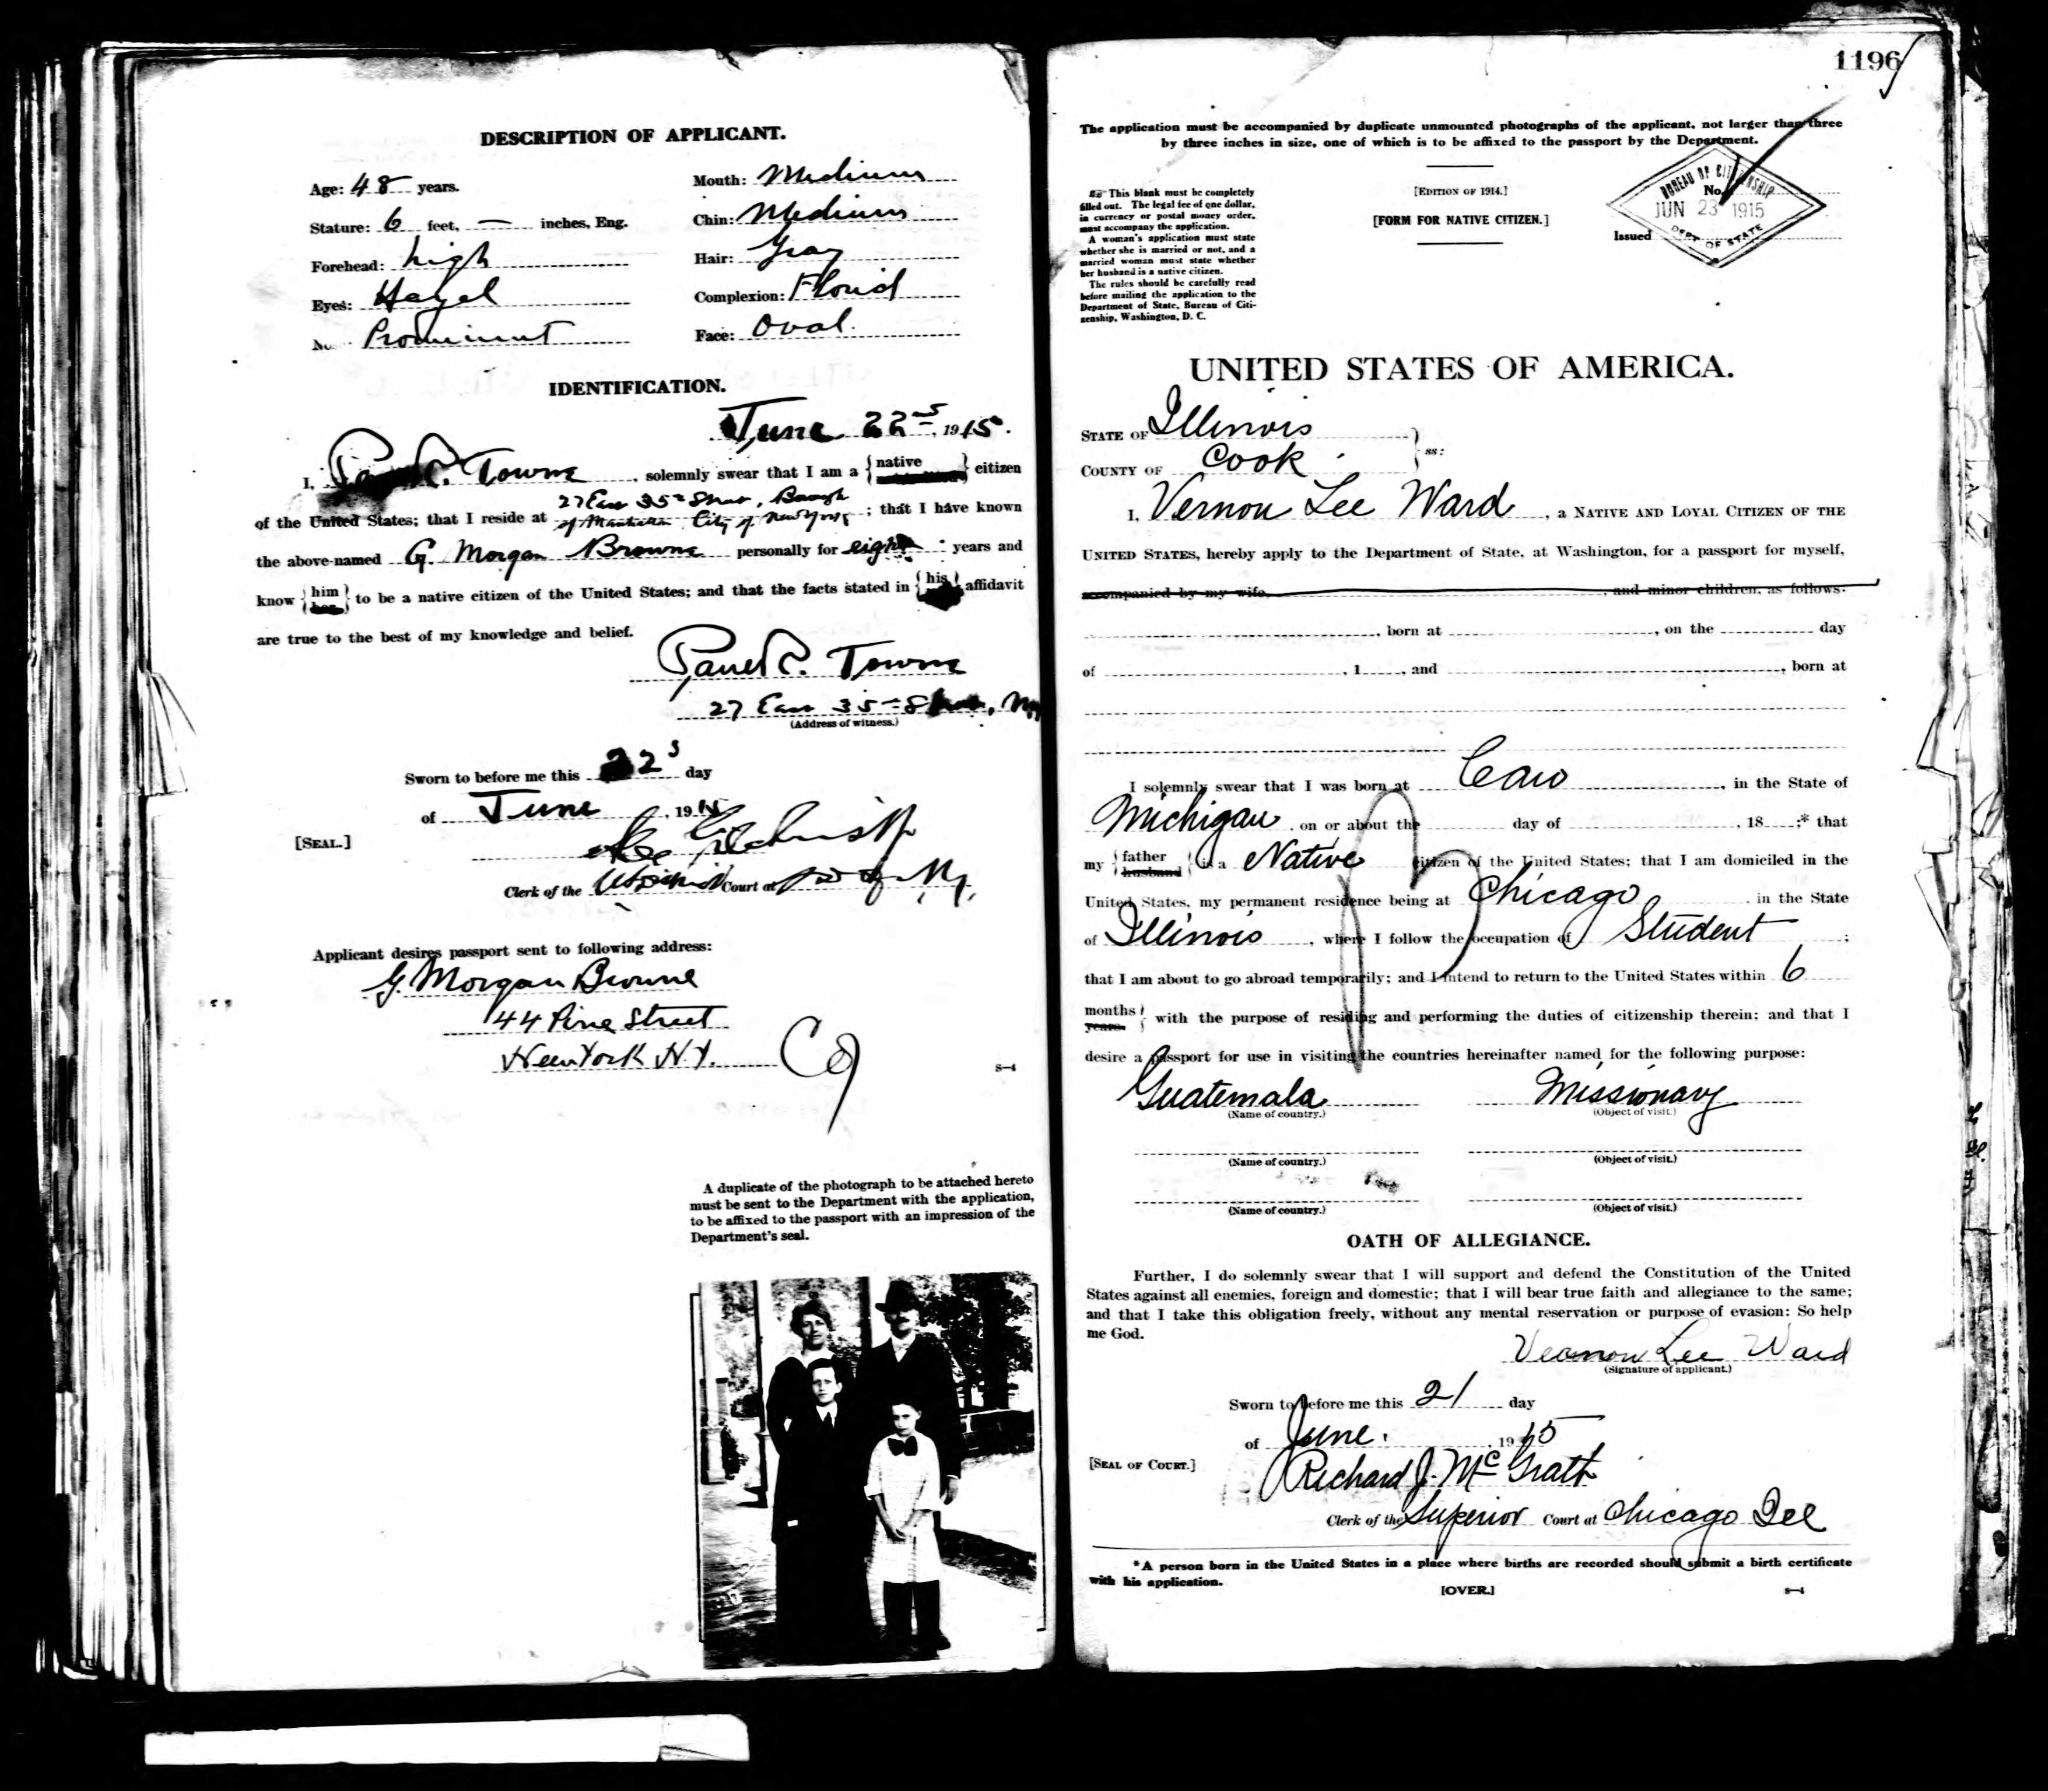 DESCRIPTION OF APPLICANT.
Age: 48 years.
Stature: 6 feet, — inches, Eng.
Forehead: high
Eyes: Hazel
Prominent
Mouth: Medium
Chin: Medium
Hair: Gray
Complexion: Florid
Face: Oval.
IDENTIFICATION.
June 22, 1915.
I, C. Towne, solemnly swear that I am a native citizen
of the United States; that I reside at 27 East 35th Street, Borough of Manhattan City of New York; that I have known
the above-named G. Morgan Browne personally for eight years and
know him to be a native citizen of the United States; and that the facts stated in his affidavit
are true to the best of my knowledge and belief.
C. Towne
27 East 35th
(Address of witness.)
Sworn to before me this 22 day
of June, 1915
[SEAL.]
Clerk of the Court at
Applicant desires passport sent to following address:
G. Morgan Browne
44 Pine Street
New York N.Y.
8—4
A duplicate of the photograph to be attached hereto
must be sent to the Department with the application,
to be affixed to the passport with an impression of the
Department's seal.
1196
The application must be accompanied by duplicate unmounted photographs of the applicant, not larger than three
by three inches in size, one of which is to be affixed to the passport by the Department.
This blank must be completely
filled out. The legal fee of one dollar,
in currency or postal money order,
must accompany the application.
A woman's application must state
whether she is married or not, and a
married woman must state whether
her husband is a native citizen.
The rules should be carefully read
before mailing the application to the
Department of State, Bureau of Citi-
zenship, Washington, D. C.
[EDITION OF 1914.]
[FORM FOR NATIVE CITIZEN.]
No.
Issued
BUREAU OF CITIZENSHIP
JUN 23 1915
DEPT OF STATE
UNITED STATES OF AMERICA.
STATE OF Illinois
COUNTY OF Cook
ss:
I, Vernon Lee Ward, a NATIVE AND LOYAL CITIZEN OF THE
UNITED STATES, hereby apply to the Department of State, at Washington, for a passport for myself,
accompanied by my wife, , and minor children, as follows:
, born at , on the day
of , 1 , and , born at
I solemnly swear that I was born at Caro, in the State of
Michigan, on or about the day of , 18 ;* that
my father husband is a Native citizen of the United States; that I am domiciled in the
United States, my permanent residence being at Chicago in the State
of Illinois, where I follow the occupation of Student;
that I am about to go abroad temporarily; and I intend to return to the United States within 6
months years with the purpose of residing and performing the duties of citizenship therein; and that I
desire a passport for use in visiting the countries hereinafter named for the following purpose:
Guatemala Missionary
(Name of country.) (Object of visit.)
(Name of country.) (Object of visit.)
(Name of country.) (Object of visit.)
OATH OF ALLEGIANCE.
Further, I do solemnly swear that I will support and defend the Constitution of the United
States against all enemies, foreign and domestic; that I will bear true faith and allegiance to the same;
and that I take this obligation freely, without any mental reservation or purpose of evasion: So help
me God.
Vernon Lee Ward
(Signature of applicant.)
Sworn to before me this 21 day
of June, 1915
[SEAL OF COURT.]
Richard J. McGrath
Clerk of the Superior Court at Chicago Ill
*A person born in the United States in a place where births are recorded should submit a birth certificate
with his application.
[OVER.]
8—4